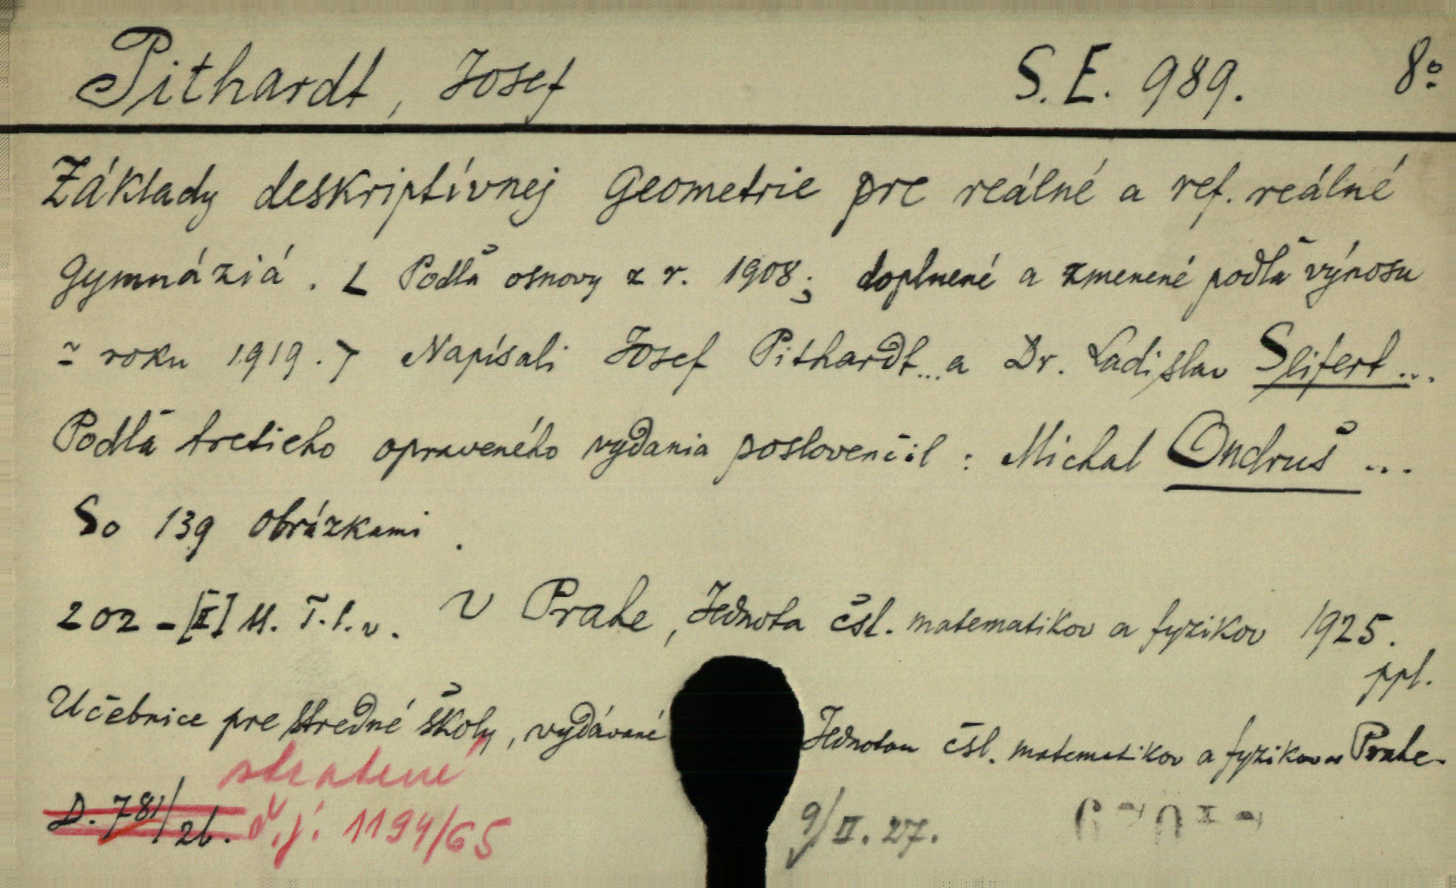 Pithardt, Josef S.E. 989. 8º
Základy deskriptívnej Geometrie pre reálné a ref. reálné
gymnáziá. [Podľa osnovy z r. 1908; doplnené a zmenené podľa výnosu
z roku 1919.] Napísali Josef Pithardt... a Dr. Ladislav Seifert...
Podľa tretieho opraveného vydania poslovenčil: Michal Ondruš ...
So 139 obrázkami.
202-[II] s. T.l.v. V Prahe, Jednota čsl. matematikov a fyzikov 1925.
ppl.
Učebnice pre stredné školy, vydávané Jednotou čsl. matematikov a fyzikov v Prahe.
stratené
D. 781/26. č.j. 1194/65 9/II.27.